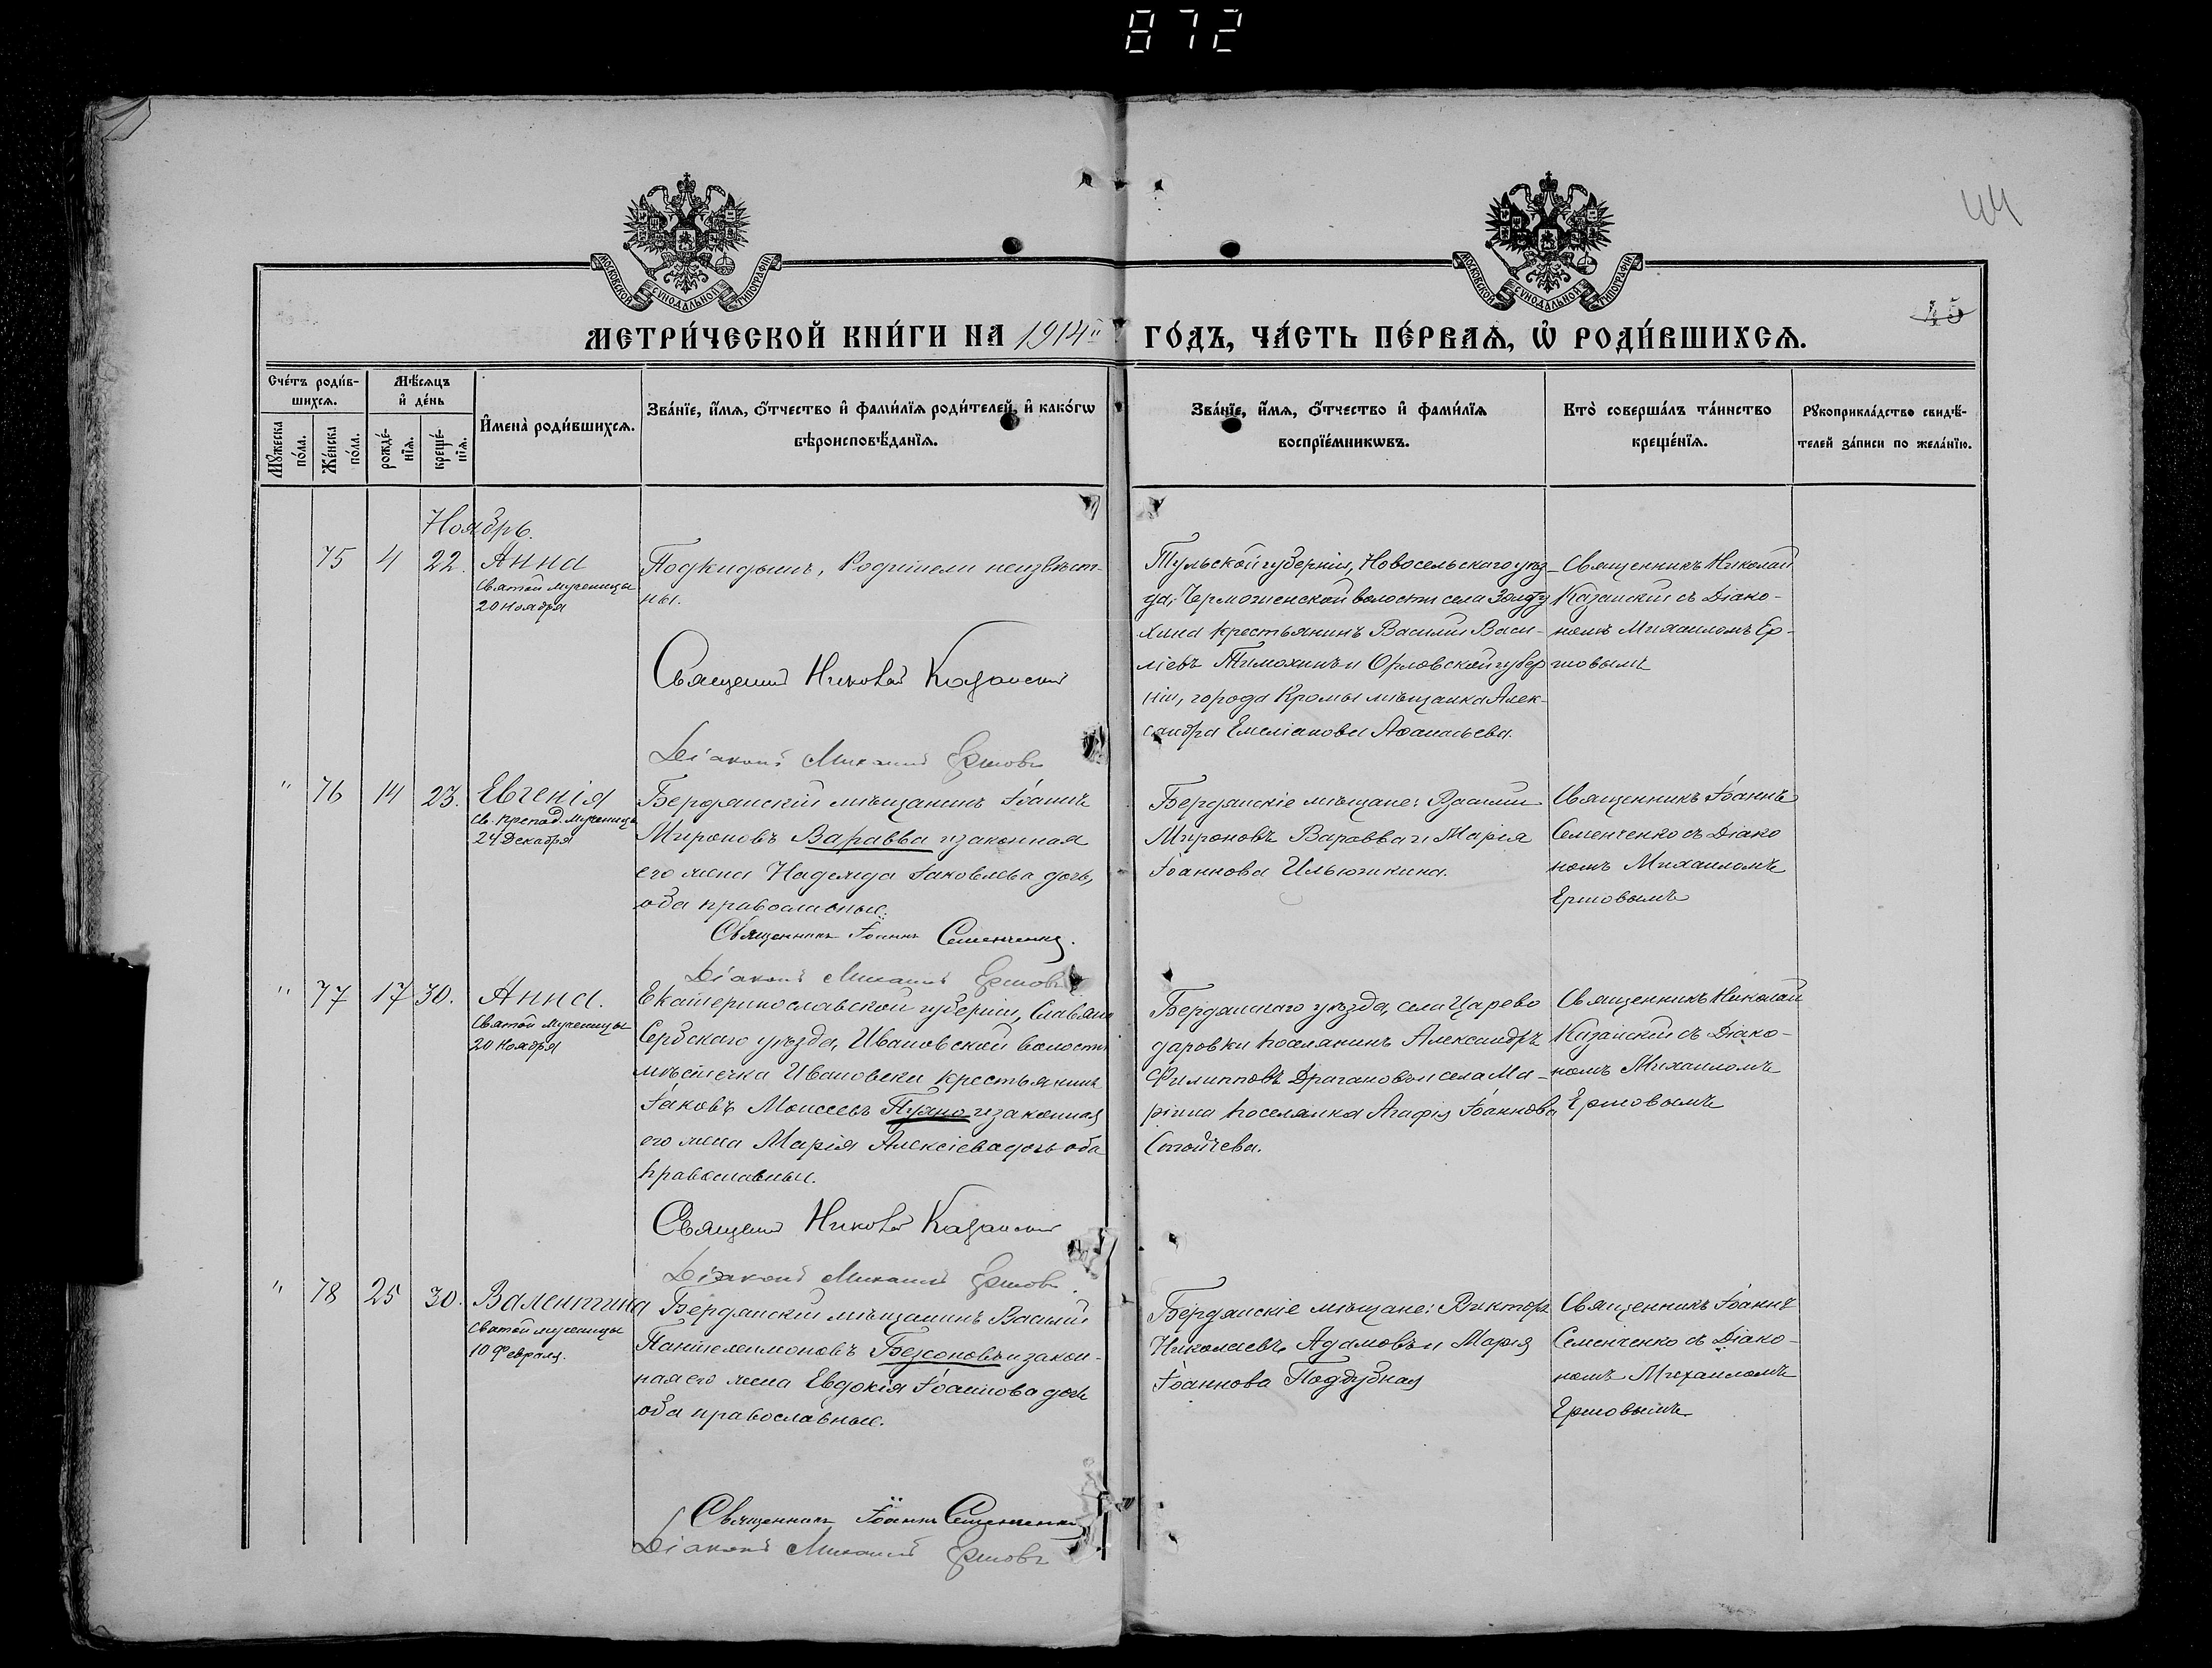 872
44
МОСКОВСКОЙ СѴНОДАЛЬНОЙ ТИПОГРАФІИ
МОСКОВСКОЙ СѴНОДАЛЬНОЙ ТИПОГРАФІИ
45
МЕТРИ́ЧЕСКОЙ КНИ́ГИ НА 1914й ГО́ДЪ, ЧА́СТЬ ПЕ́РВАѦ, Ѡ҆ РОДИ́ВШИХСѦ.
Сче́тъ роди́в-
шихсѧ.
Мѣ́сѧцъ
и҆ де́нь
Мꙋ́жеска
по́ла.
Же́нска
по́ла.
рожде́-
нїѧ.
креще́-
нїѧ.
И҆мена̀ роди́вшихсѧ.
Зва́нїе, и҆́мѧ, ѻ҆́тчество и҆ фами́лїѧ роди́телей, и҆ како́гѡ
вѣроисповѣ́данїѧ.
Зва́нїе, и҆́мѧ, ѻ҆́тчество и҆ фами́лїѧ
воспрїе́мникѡвъ.
Кто̀ соверша́лъ та́инство
креще́нїѧ.
Рꙋкоприкла́дство свидѣ́-
телей за́писи по жела́нїю.
Ноябрь.
75 4 22. Анна
Святой Мученицы
20 Ноября
Подкидышъ, Родители неизвѣст-
ны.
Священникъ Николай Казанскій
Діаконъ Михаилъ Ершовъ
Тульской губерніи, Новосельскаго уѣз-
да, волости села
крестьянинъ Василій Васи-
ліевъ Тимохинъ и Орловской губер
ніи, города Кромы мѣщанка Алек-
сандра Емеліанова Аѳанасьева.
Священникъ Николай
Казанскій съ Діако-
номъ Михаиломъ Ер-
шовымъ
" 76 14 23. Евгенія
Св. препод. Мученицы
24 Декабря
Бердянскій мѣщанинъ Іоаннъ
Мироновъ Варавва и законная
его жена Надежда Іаковлева дочь,
оба православные.
Священникъ Іоаннъ Семенченко.
Діаконъ Михаилъ Ершовъ
Бердянскіе мѣщане: Василій
Мироновъ Варавва и Марія
Іоаннова Ильюшкина.
Священникъ Іоаннъ
Семенченко съ Діако
номъ Михаиломъ
Ершовымъ
" 77 17 30. Анна.
Святой Мученицы
20 Ноября
Екатеринославской губерніи, Славяно
Сербскаго уѣзда, Ивановской волости
мѣстечка Ивановки крестьянинъ
Іаковъ Моисеевъ и законная
его жена Марія Алексіева дочь оба
православные.
Священникъ Николай Казанскій
Діаконъ Михаилъ Ершовъ.
Бердянскаго уѣзда, села Царево
даровки поселянинъ Александръ
Филипповъ Драгановъ и села Ма-
ріина поселянка Агафія Іоаннова
Стойчева.
Священникъ Николай
Казанскій съ Діако-
номъ Михаиломъ
Ершовымъ
" 78 25 30. Валентина
Святой мученицы
10 Февраля.
Бердянскій мѣщанинъ Василій
Пантелеимоновъ Безсоновъ и закон-
ная его жена Евдокія Іоаннова дочь
оба православные.
Священникъ Іоаннъ Семенченко
Діаконъ Михаилъ Ершовъ
Бердянскіе мѣщане: Викторъ
Николаевъ Адамовъ и Марія
Іоаннова Поддубная
Священникъ Іоаннъ
Семенченко съ Діако-
номъ Михаиломъ
Ершовымъ